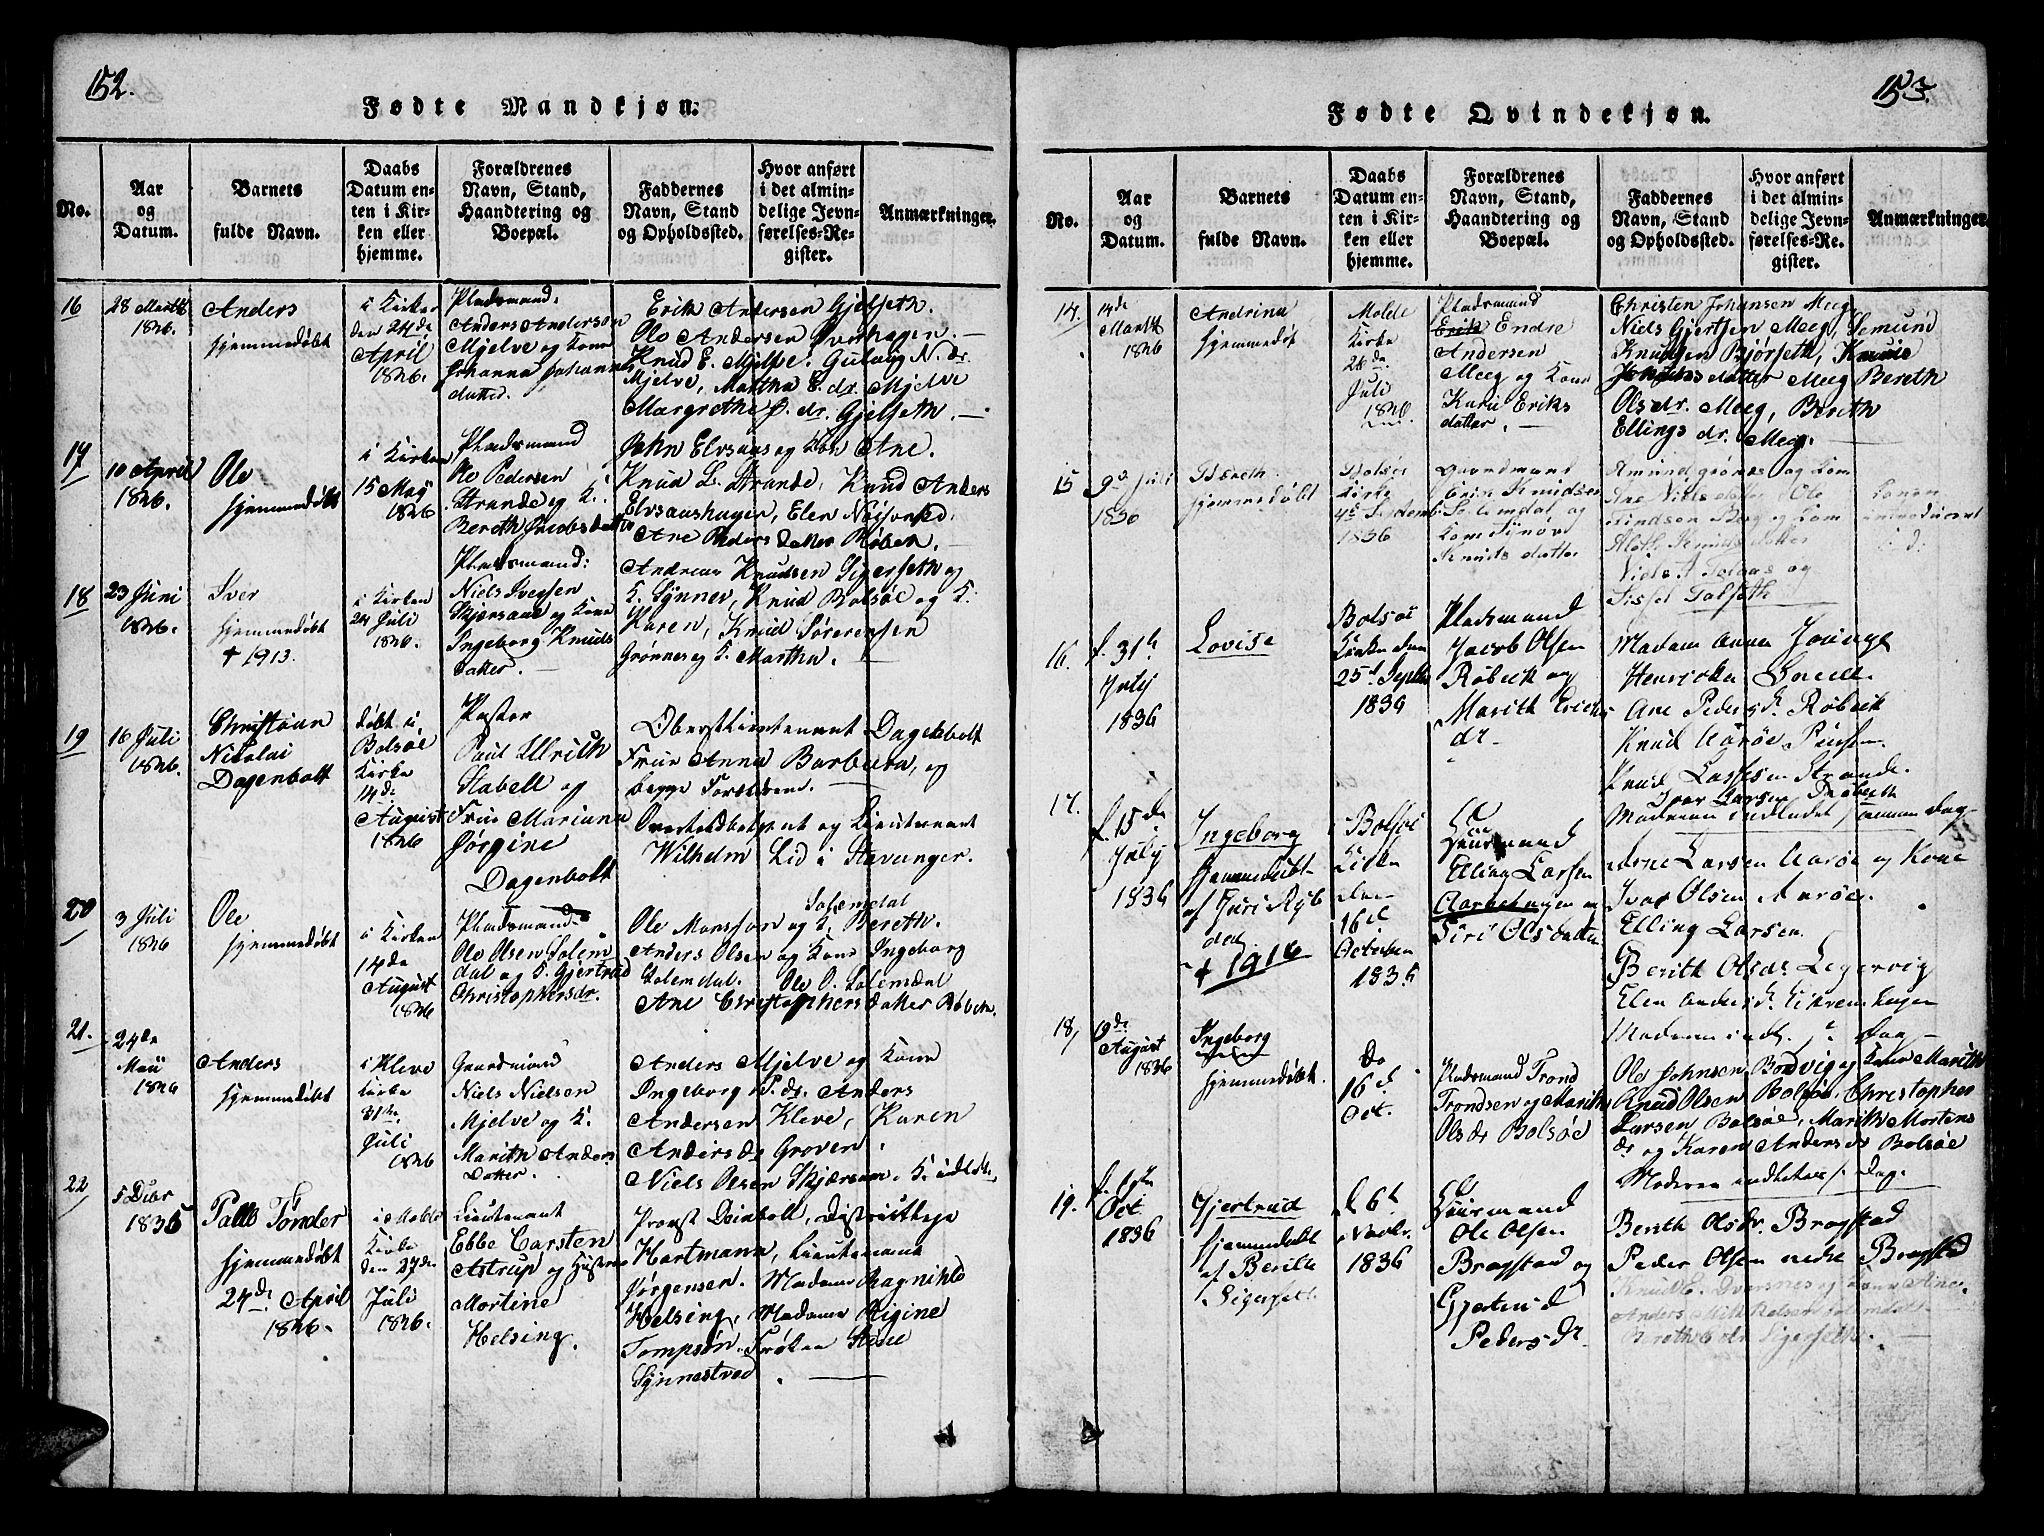 152.
Fødte Mandkjøn.
No.
Aar
og
Datum.
Barnets
fulde Navn.
Daabs
Datum en-
ten i Kir-
ken eller
hjemme.
Forældrenes
Navn, Stand,
Haandtering og
Boepæl.
Faddernes
Navn, Stand
og Opholdssted.
Hvor anført
i det almin-
delige Jevn-
førelses-Re-
gister.
Anmærkninger.
16
28 Martii
1836.
Anders
hjemmedøbt
i Kirken
den 24de
April
1836.
Pladsmand
Anders Andersen
Mjelve og Kone
Johanna Johannes
datter.
Erik Andersen Gjelseth.
Ole Andersen Øverhagen.
Knud E. Mjelve. Gulaug N. dr.
Mjelve, Martha E. dr. Mjelve
Margrethe P. dr. Gjelseth.
17
10 April
1836.
Ole
hjemmedøbt
i Kirken
15 May
1836
Pladsmand
Ole Pedersen
Strande og K.
Bereth Jacobsdatter
John Elvsaas og Kone Ane.
Knud L. Strande, Knud Anders
Elvsaashagen, Elen
Ane Peders datter Røbek.
18
23 Juni
1836.
Iver
hjemmedøbt
† 1913.
i Kirken
24 Juli
1836.
Pladsmand:
Niels Iversen
Skjersaae og Kone
Ingeborg Knuds
datter.
Andreas Knudsen Sigerseth og
K. Synnev, Knud Bolsøe og K.
Karen, Knud Sørensen
Grønnes og K. Martha.
19
16 Juli
1836.
Christian
Nicolai
Dagenbolt
døbt i
Bolsøe
Kirke
14de
August
1836
Pastor
Paul Ulrich
Stabell og
Frue Mariane
Jørgine
Dagenbolt
Oberstlieutenant Dagenbolt
Frue Anna Barbara, og
begge Forældrene.
og Lieutenant
Wilhelm Lid i Stavanger.
20
3 Juli
1836
Ole
hjemmedøbt
i Kirken
14de
August
1836
Pladsmand
Ole Olsen Solem
dal og K. Gjertrud
Christophersdr.
Solemdal
Ole Monsson og K. Bereth.
Anders Olsen og Kone Ingeborg
Solemdal. Ole O. Solemdal
Ane Christophersdatter Røbek.
21.
24de
Maii
1836
Anders
hjemmedøbt
i Kleve
Kirke
31te
Juli
1836
Gaardmand
Niels Nielsen
Mjelve og K.
Marith Anders
datter.
Anders Mjelve og Kone
Ingeborg P. dr. Anders
Andersen Kleve, Karen
Anders dr. Groven.
Niels Olsen Skjersaae.
22
5 Debr
1835
Palle Tønder
hjemmedøbt
24de April
1836.
i Molde
Kirke
den 27de
Juli
1836.
Lieutenant
Ebbe Carsten
Astrup og Hustrue
Mortine
Helsing.
Provst Deinboll, Districtslæge
Hartmann, Lieutenant
Jørgensen. Madame Ragnihld
Helsing, Madame Rigine
Tompson. Frøken
Synnestved
153.
Fødte Qvindekjøn.
No.
Aar
og
Datum.
Barnets
fulde Navn.
Daabs
Datum en-
ten i Kir-
ken eller
hjemme.
Forældrenes
Navn, Stand,
Haandtering og
Boepæl.
Faddernes
Navn, Stand
og Opholdssted.
Hvor anført
i det almin-
delige Jevn-
førelses-Re-
gister.
Anmærkninger
14.
14de
Martii
1836
Andrina
hjemmedøbt
Molde
Kirke
Juli
1836
Pladsmand
Erik Endre
Andersen
Meeg og Kone
Kari Eriks
datter.
Christen Johansen Meeg
Niels Gjertsen Meeg, Semund
Knudsen Bjørseth,
datter Meeg Bereth
Ols dr. Meeg, Bereth
Ellings dr. Meeg.
15
9de Juli
1836
Bereth
hjemmedøbt
Bolsøe
Kirke
4de Septemb
1836
Gaardmand
Erik Knudsen
Solemdal og
Kone Synøve
Knuds datter
Amund Grønnes og Kone
Ane Nielsdatter, Ole
og Kone
Knudsdatter
Niels
Konen
introduceret
16.
f. 31te
July
1836
Lovise
Bolsøe
Kirke den
25d Septbr
1836
Pladsmand
Jacob Olsen
Røbeck og
Marith Erichs
dr
Madam Anna
Ane Peders dr. Røbeck
Knud Aarøe
Knud Lassesen Strande.
Iver Larsen Røbeck
Moderen indledet samme Dag
17.
f. 15de
July
1836
Ingeborg
hjemmedøbt
af
† 1916
Bolsøe
Kirke
den
16d
October
1836
Huusmand
Elling Larsen
Aarøehagen og
Siri Olsdatter
Arne Larsen Aarøe og Kone
Ivar Olsen Aarøe.
Elling Larsen
Berith Olsdr. Legervig
Elen Anders dr.
Moderen indl. s. Dag
18,
9de
August
1836
Ingeborg
hjemmedøbt.
Do
16d
Oct.
Pladsmand Trond
Trondsen og Marith
Olsdr Bolsøe
Ole Johnsen Bodvig og Kone Marith
Knud Olsen Bolsøe, Christopher
Larsen Bolsøe, Marith Mortens
dr og Karen Anders dr Bolsøe
Moderen indledet s. Dag.
19.
Oct
1836
Gjertrud
hjemmedøbt
af Berith
Sigerset
d. 6te
Novbr.
1836
Huusmand
Ole Olsen
Bragstad og
Gjertrud
Peders dr.
Berith Olsdr. Bragstad
Peder Olsen nedre Bragstad
og Kone Ane.
Anders Mikkelsen Solemdal
Bereth dr Sigerseth.